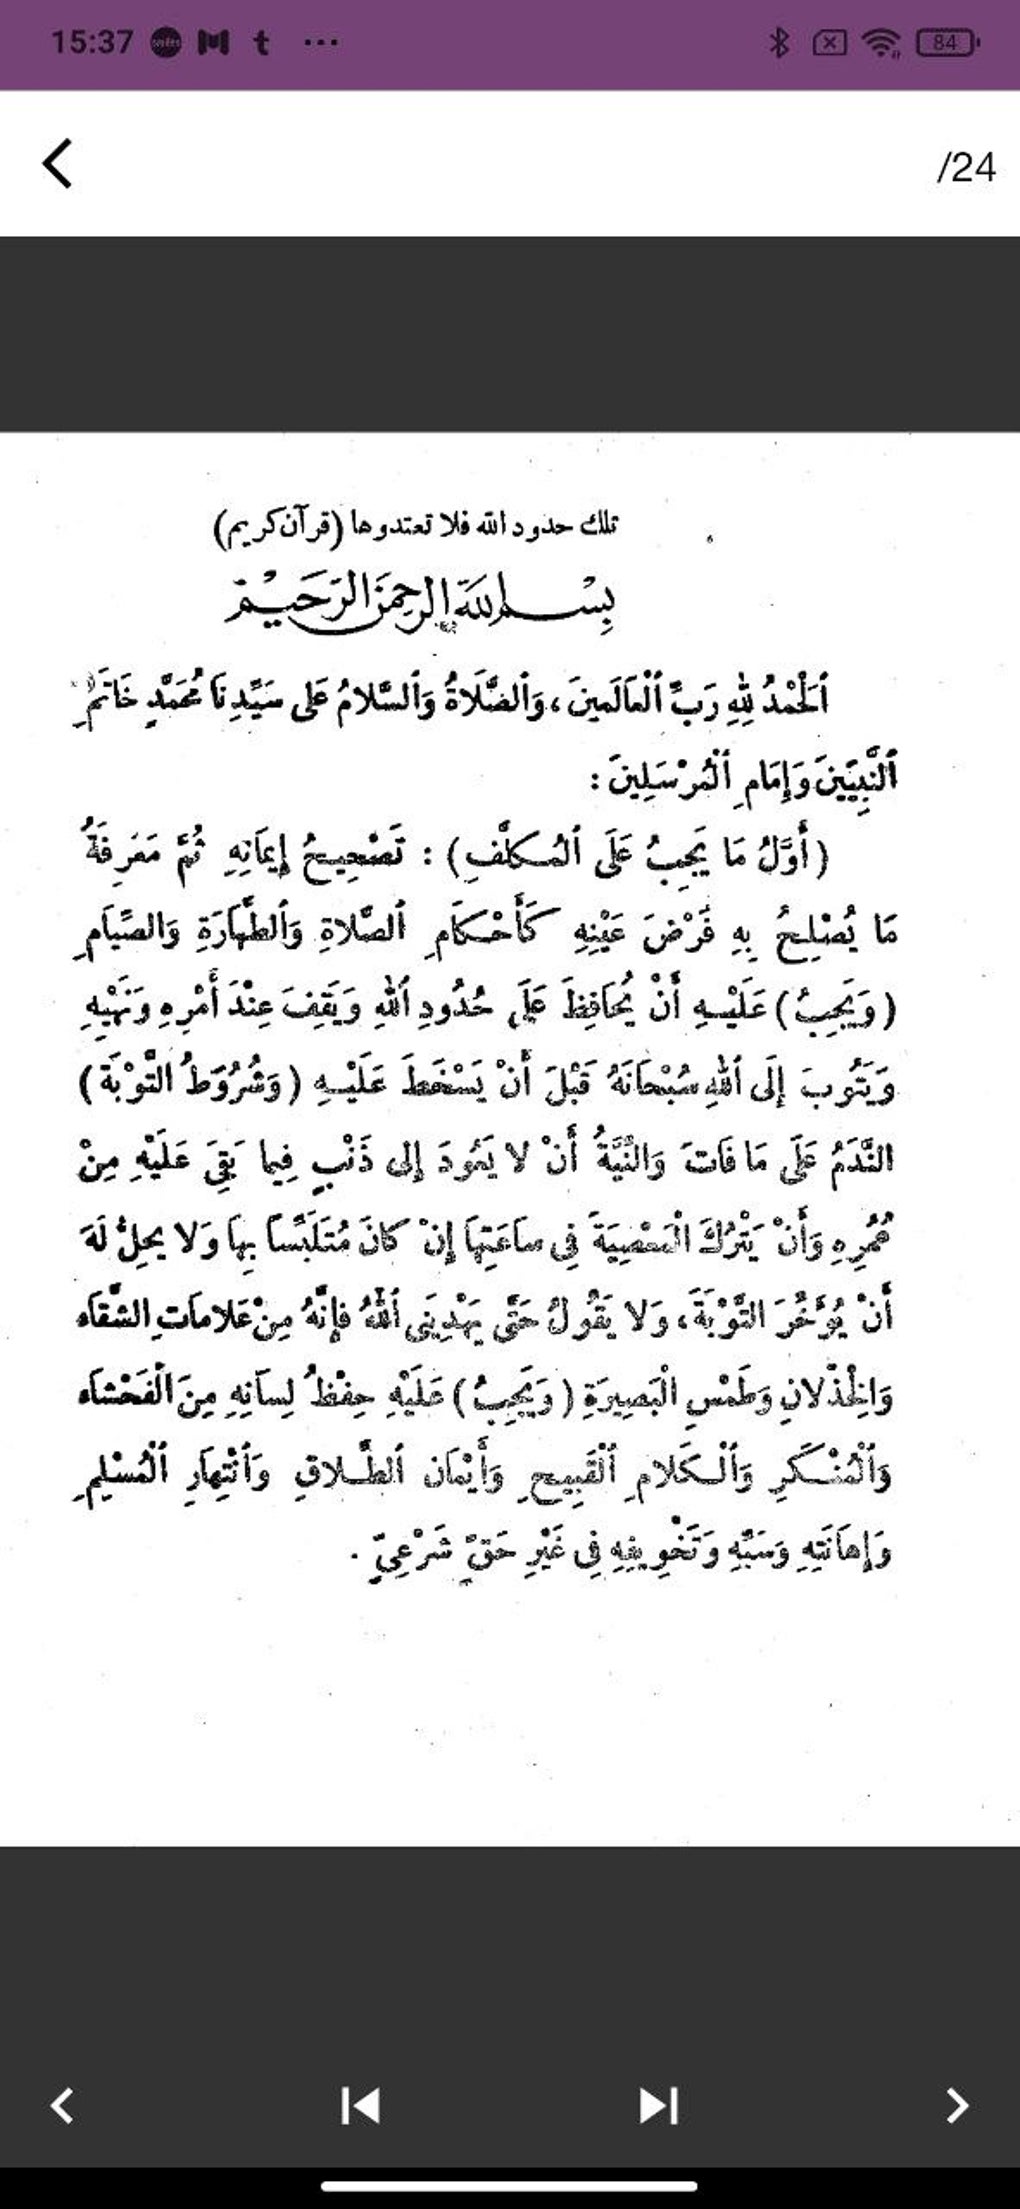 15:37
84
/24
تلك حدود الله فلا تعتدوها (قرآن كريم)
بِسْمِ اللهِ الرَّحْمٰنِ الرَّحِيْمِ
اَلْحَمْدُ لِلهِ رَبِّ ٱلْعَالَمِينَ، وَٱلصَّلَاةُ وَٱلسَّلَامُ عَلَى سَيِّدِنَا مُحَمَّدٍ خَاتَمِ
ٱلنَّبِيِّينَ وَإِمَامِ ٱلْمُرْسَلِينَ :
(أَوَّلُ مَا يَجِبُ عَلَى ٱلْمُكَلَّفِ) : تَصْحِيحُ إِيمَانِهِ ثُمَّ مَعْرِفَةُ
مَا يُصْلِحُ بِهِ فَرْضَ عَيْنِهِ كَأَحْكَامِ ٱلصَّلَاةِ وَٱلطَّهَارَةِ وَالصِّيَامِ
(وَيَجِبُ) عَلَيْهِ أَنْ يُحَافِظَ عَلَى حُدُودِ ٱللهِ وَيَقِفَ عِنْدَ أَمْرِهِ وَنَهْيِهِ
وَيَتُوبَ إِلَى ٱللهِ سُبْحَانَهُ قَبْلَ أَنْ يَسْخَطَ عَلَيْهِ (وَشُرُوطُ التَّوْبَةِ)
النَّدَمُ عَلَى مَا فَاتَ وَالنِّيَّةُ أَنْ لَا يَعُودَ إِلَى ذَنْبٍ فِيمَا بَقِيَ عَلَيْهِ مِنْ
عُمُرِهِ وَأَنْ يَتْرُكَ الْمَعْصِيَةَ فِى سَاعَتِهَا إِنْ كَانَ مُتَلَبِّسًا بِهَا وَلَا يَحِلُّ لَهُ
أَنْ يُؤَخِّرَ التَّوْبَةَ، وَلَا يَقُولُ حَتَّى يَهْدِيَنِى ٱللهُ فَإِنَّهُ مِنْ عَلَامَاتِ الشَّقَاءِ
وَالْخِذْلَانِ وَطَمْسِ الْبَصِيرَةِ (وَيَجِبُ) عَلَيْهِ حِفْظُ لِسَانِهِ مِنَ الْفَحْشَاءِ
وَٱلْمُنْكَرِ وَٱلْكَلَامِ ٱلْقَبِيحِ وَأَيْمَانِ ٱلطَّلَاقِ وَٱنْتِهَارِ ٱلْمُسْلِمِ
وَإِهَانَتِهِ وَسَبِّهِ وَتَخْوِيفِهِ فِى غَيْرِ حَقٍّ شَرْعِيٍّ .